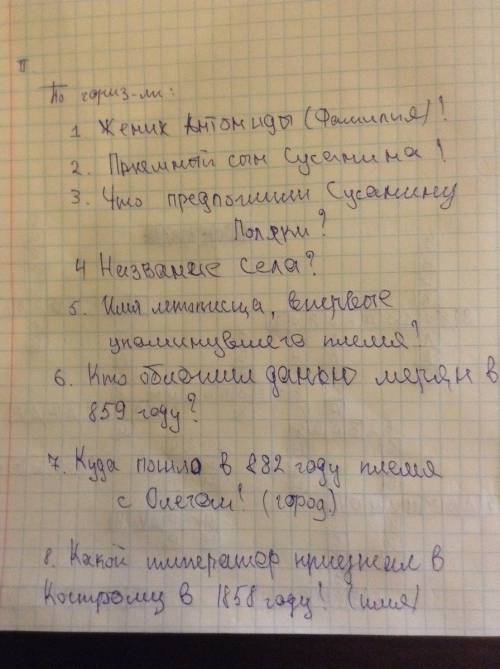 II
По гориз-ли:
1 Жених Антониды (Фамилия)!
2. Приемный сын Сусанина!
3. Что предложили Сусанину
Поляки?
4 Название села?
5. Имя летописца, впервые
упоминувшего племя?
6. Кто обложил данью мерян в
859 году?
7. Куда пошло в 882 году племя
с Олегом! (город.)
8. Какой император приезжал в
Кострому в 1858 году! (имя)